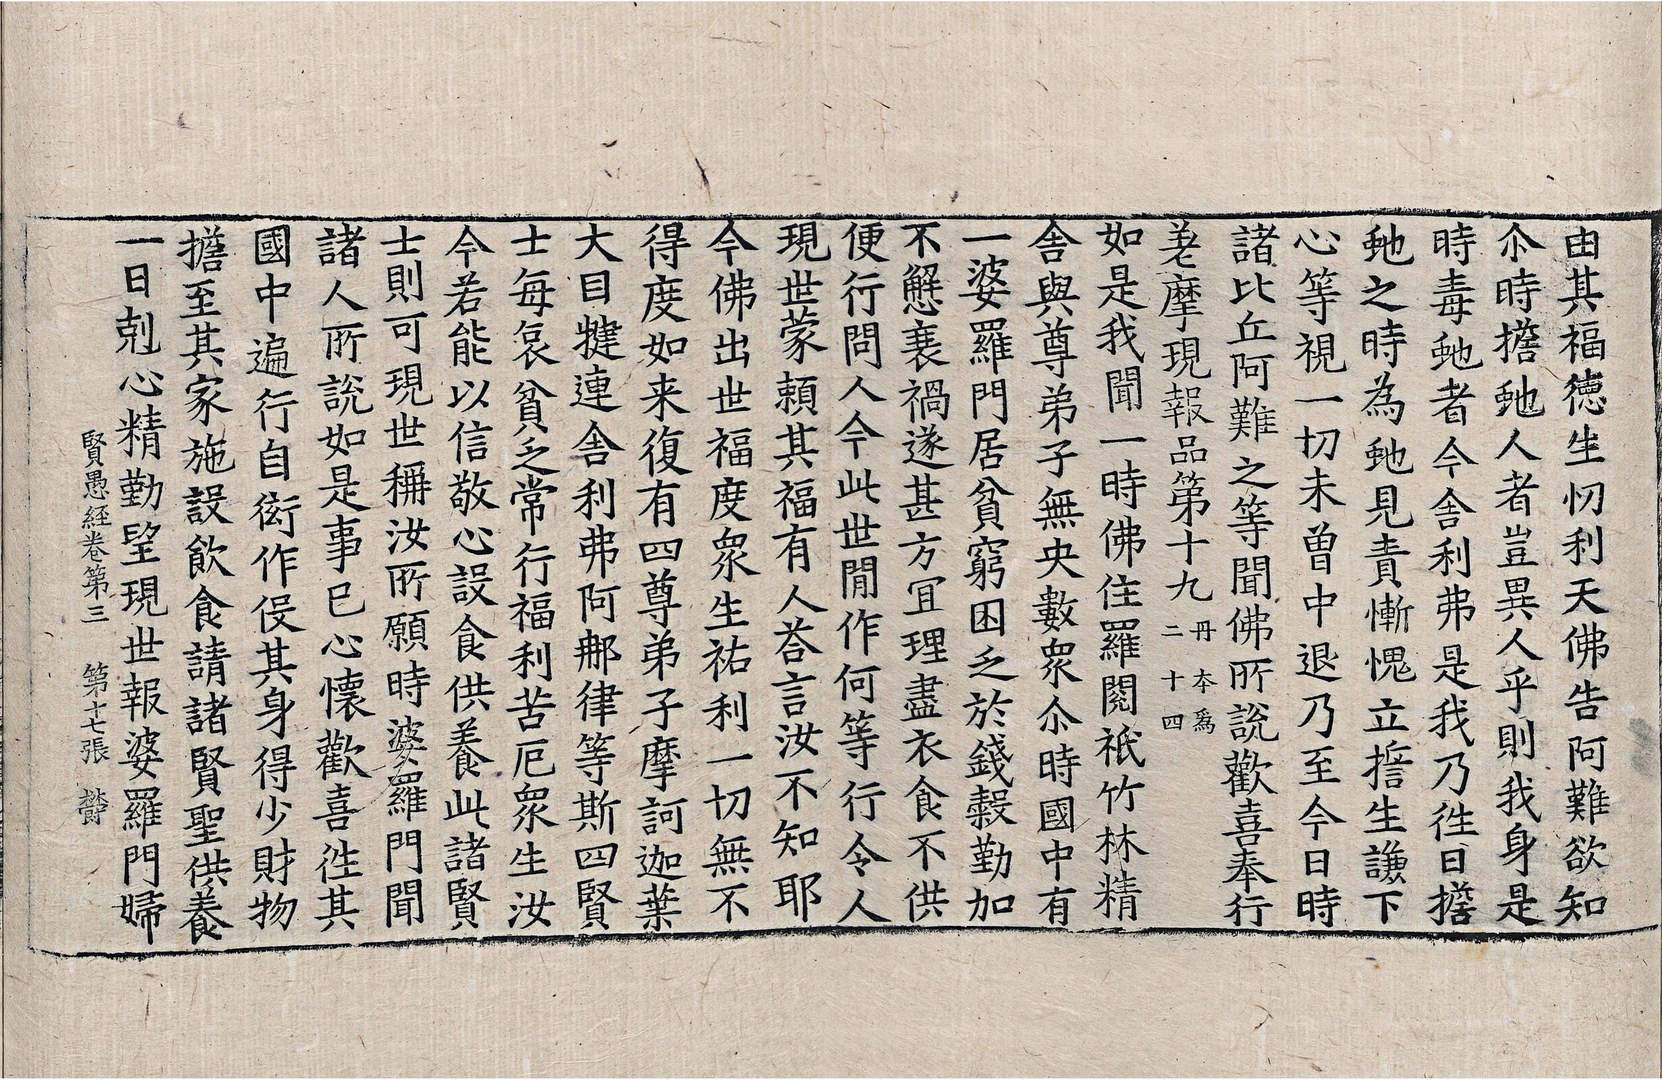 由其福德生忉利天佛告阿難欲知
尒時擔虵人者豈異人乎則我身是
時毒虵者今舍利弗是我乃徃日擔
虵之時為虵見責慚愧立誓生謙下
心等視一切未曽中退乃至今日時
諸比丘阿難之等聞佛所說歡喜奉行
差摩現報品第十九 丹本爲二十四
如是我聞一時佛住羅閱祇竹林精
舍與尊弟子無央數衆尒時國中有
一婆羅門居貧窮困乏於錢穀勤加
不懈衰禍遂甚方冝理盡衣食不供
便行問人今此世閒作何等行令人
現世蒙賴其福有人荅言汝不知耶
今佛出世福度衆生祐利一切無不
得度如来復有四尊弟子摩訶迦葉
大目揵連舍利弗阿那律等斯四賢
士每哀貧乏常行福利苦厄衆生汝
今若能以信敬心設食供養此諸賢
士則可現世稱汝所願時婆羅門聞
諸人所說如是事已心懷歡喜徃其
國中遍行自衒作役其身得少財物
擔至其家施設飲食請諸賢聖供養
一日剋心精勤望現世報婆羅門婦
賢愚経卷第三 第十七張 欝